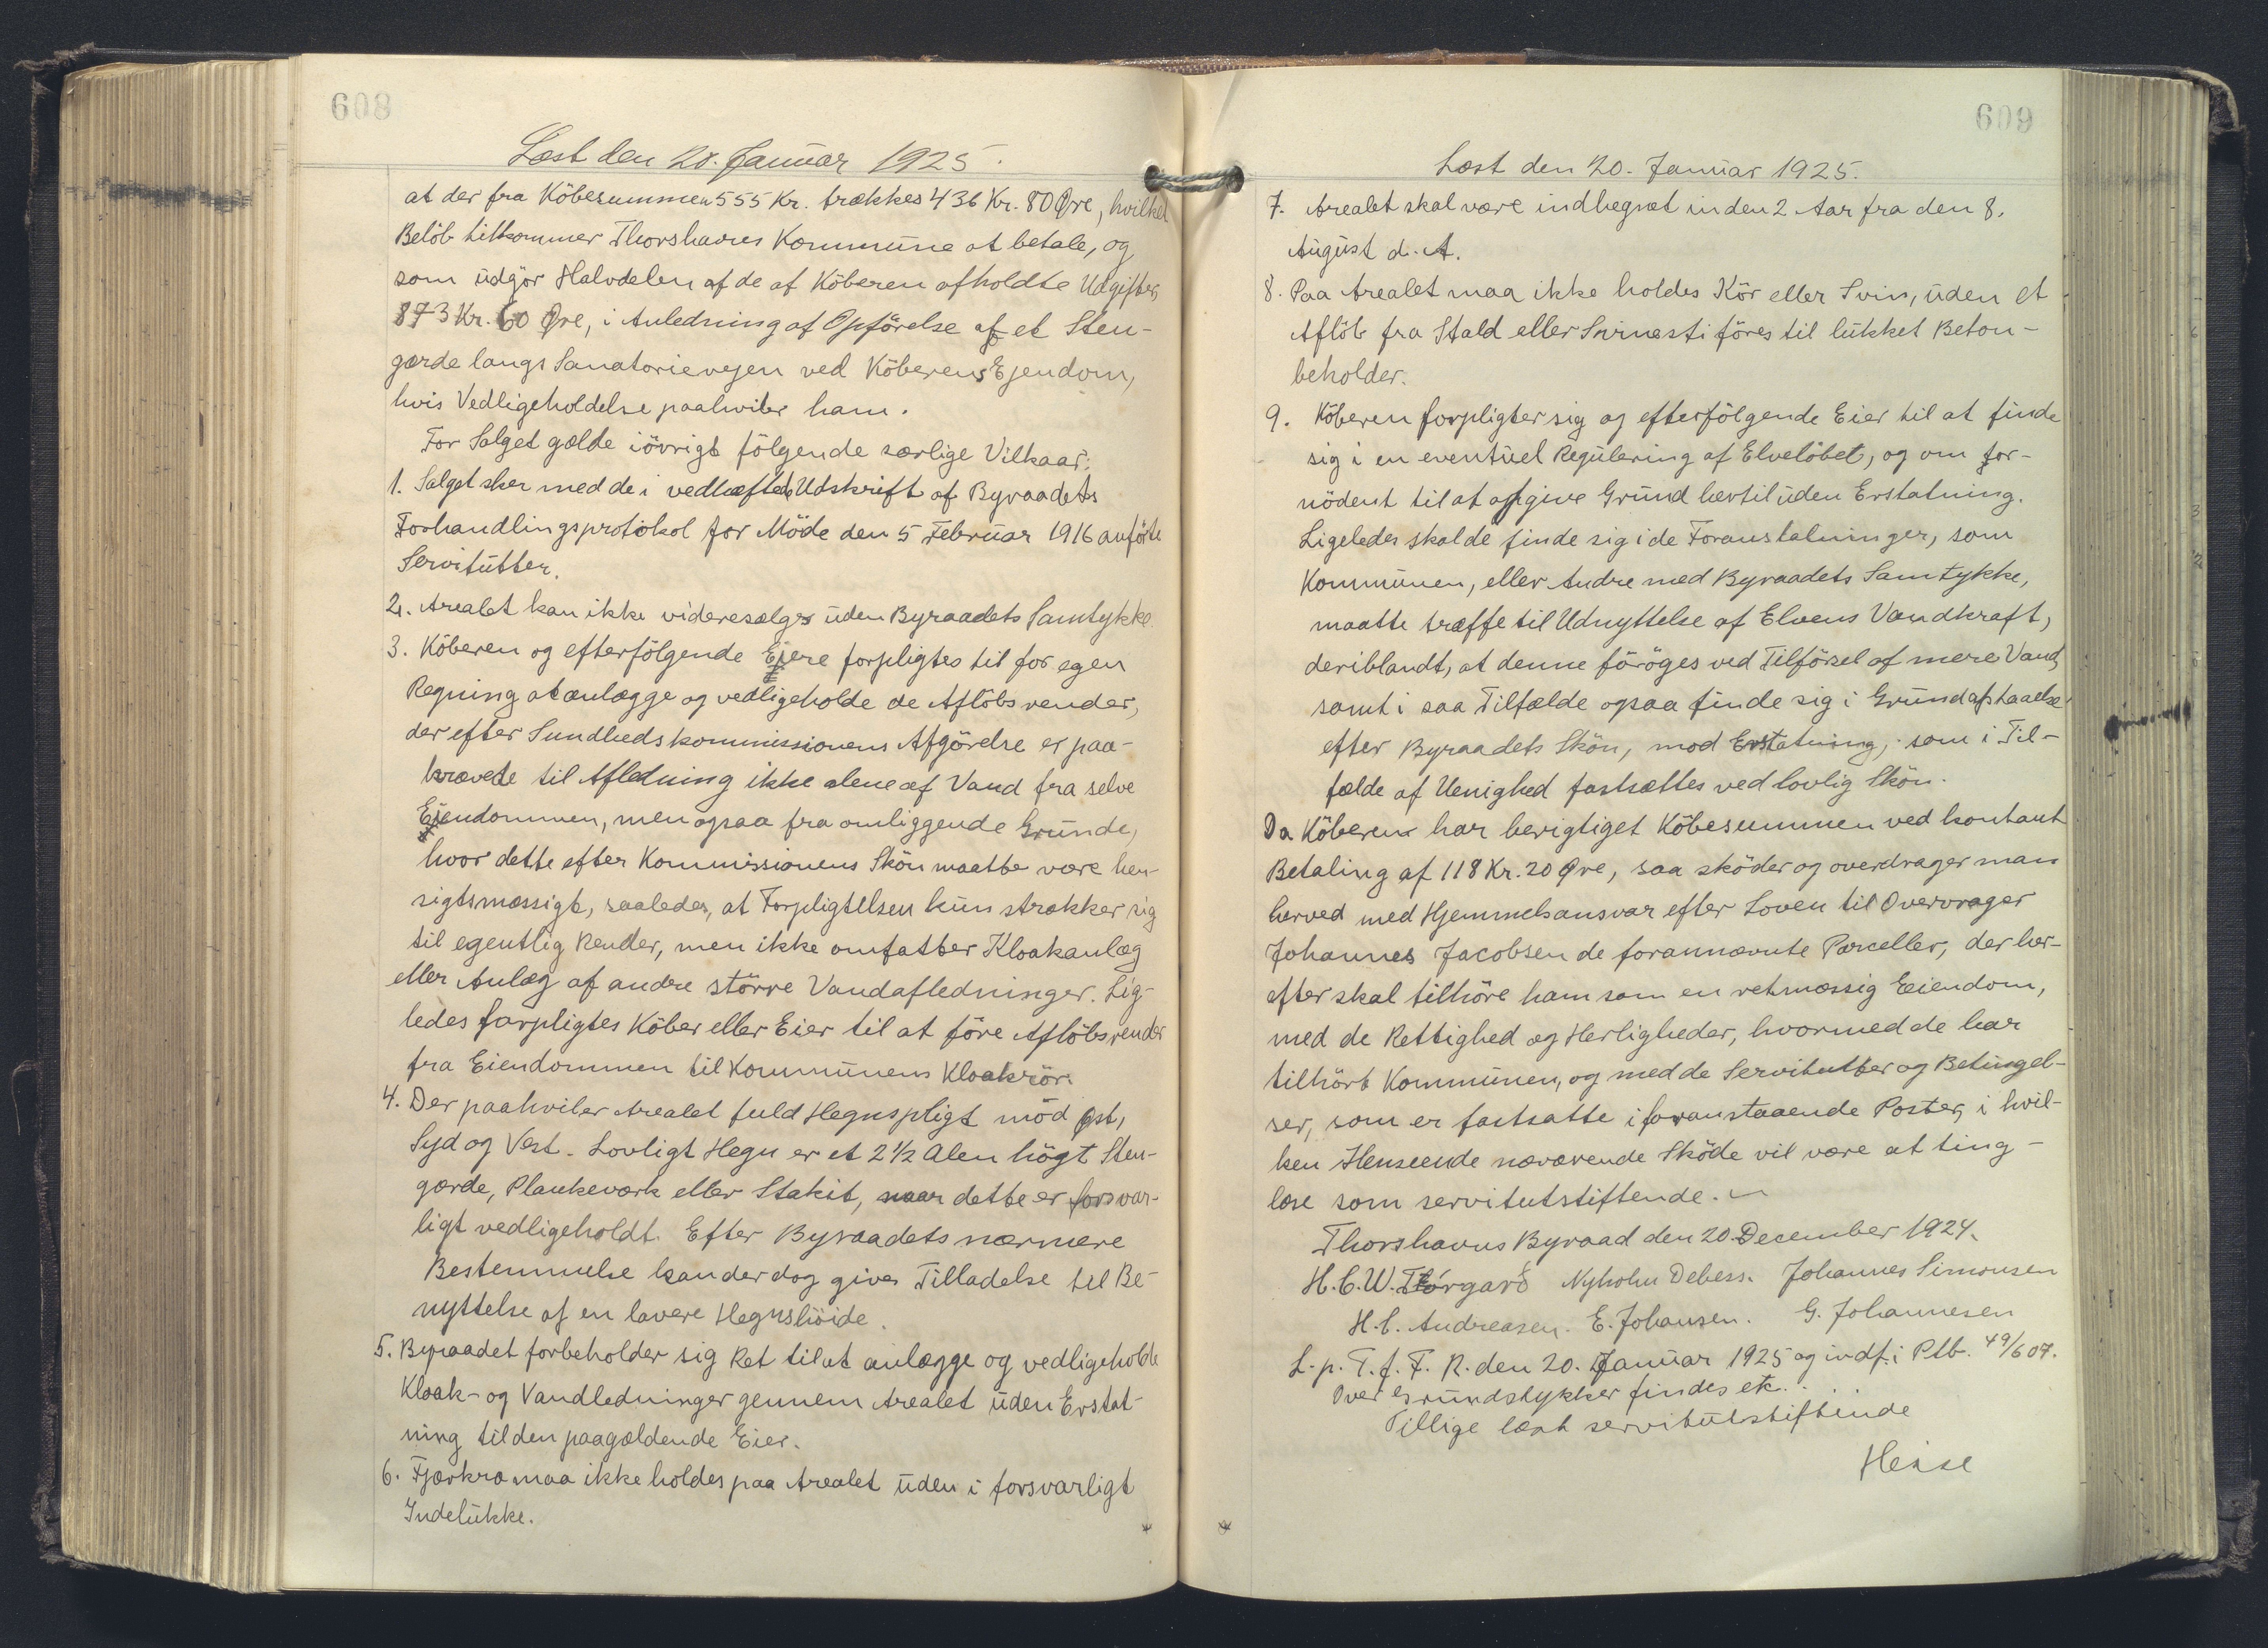 608
Læst den 20. Januar 1925.
at der fra Köbesummen 555 Kr. trækkes 436 Kr. 80 Øre, hvilket
Belöb tilkommer Thorshavns Kommune at betale, og
som udgör Halvdelen af de af Köberen afholdte Udgifter,
873 Kr. 60 Øre, i Anledning af Opförelse af et Sten-
gærde langs Sanatorievejen ved Köberens Ejendom,
hvis Vedligeholdelse paahviler ham.
For Salget gælde iövrigt fölgende særlige Vilkaar:
1. Salget sker med de i vedhæftede Udskrift af Byraadets
Forhandlingsprotokol for Möde den 5 Februar 1916 anförte
Servitutter.
2. Arealet kan ikke videresælges uden Byraadets Samtykke.
3. Köberen og efterfölgende Ejere forpligtes til for egen
Regning at anlægge og vedligeholde de Aflöbsrender,
der efter Sundhedskommissionens Afgörelse er paa-
krævede til Afledning ikke alene af Vand fra selve
Eiendommen, men ogsaa fra omliggende Grunde,
hvor dette efter Kommissionens Skön maatte være hen-
sigtsmæssigt, saaledes, at Forpligtelsen kun strækker sig
til egentlig Render, men ikke omfatter Kloakanlæg
eller Anlæg af andre större Vandafledninger. Lig-
ledes forpligtes Köber eller Eier til at före Aflöbsrender
fra Eiendommen til Kommunens Kloakrör.
4. Der paahviler Arealet fuld Hegnspligt mod Øst,
Syd og Vest. Lovligt Hegn er et 2½ Alen högt Sten-
gærde, Plankeværk eller Stakit, naar dette er forsvar-
ligt vedligeholdt. Efter Byraadets nærmere
Bestemmelse kan der dog gives Tilladelse til Be-
nyttelse af en lavere Hegnshöide.
5. Byraadet forbeholder sig Ret til at anlægge og vedligeholde
Kloak- og Vandledninger gennem Arealet uden Erstat-
ning til den paagældende Eier.
6. Fjærkræ maa ikke holdes paa Arealet uden i forsvarligt
Indelukke.
609
Læst den 20. Januar 1925.
7. Arealet skal være indhegnet inden 2 Aar fra den 8.
August d. A.
8. Paa Arealet maa ikke holdes Kör eller Svin, uden et
Aflöb fra Stald eller Svinesti föres til lukket Beton-
beholder.
9. Köberen forpligter sig og efterfölgende Eier til at finde
sig i en eventuel Regulering af Elvelöbet, og om for-
nödent til at afgive Grund hertil uden Erstatning.
Ligeledes skal de finde sig i de Foranstalninger, som
Kommunen, eller Andre med Byraadets Samtykke,
maatte træffe til Udnyttelse af Elvens Vandkraft,
deriblandt, at denne föröges ved Tilförsel af mere Vand,
samt i saa Tilfælde ogsaa finde sig i Grundafstaaelse
efter Byraadets Skön, mod Erstatning, som i Til-
fælde af Uenighed fastsættes ved lovlig Skön.
Da Köberen har berigtiget Köbesummen ved kontant
Betaling af 118 Kr. 20 Øre, saa sköder og overdrager man
herved med Hjemmelsansvar efter Loven til Overvrager
Johannes Jacobsen de forannævnte Parceller, der her-
efter skal tilhöre ham som en retmæssig Eiendom,
med de Rettighed og Herligheder, hvormed de har
tilhört Kommunen, og med de Servitutter og Betingel-
ser, som er fastsatte i foranstaaende Poster, i hvil-
ken Henseende nærværende Sköde vil være at ting-
læse som servitutstiftende.
Thorshavns Byraad den 20 December 1924.
H. C. W. Tórgarð Nyholm Debess. Johannes Simonsen
H. C. Andreasen. E. Johansen. G. Johannesen
L. p. T. f. F. R. den 20. Januar 1925 og indf. i Ptb. 49/607.
Over Grundstykker findes etc.
Tillige læst servitutstiftinde
Heise